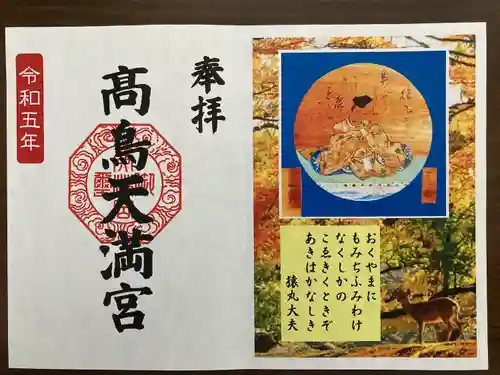 奉拝
高鳥天満宮
令和五年
おくやまに
もみぢふみわけ
なくしかの
こゑきくときぞ
あきはかなしき
猿丸大夫